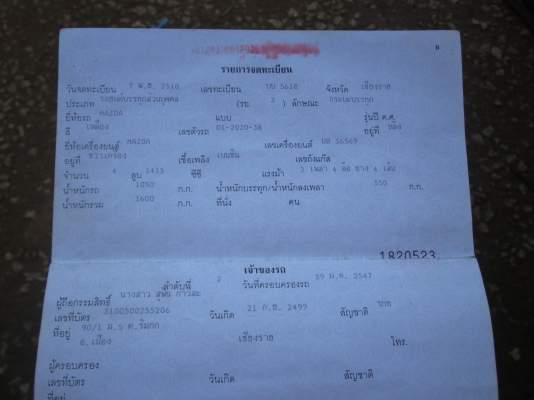 รายการจดทะเบียน
วันจดทะเบียน 7 พ.ย. 2516 เลขทะเบียน บบ 5618 จังหวัด เชียงราย
ประเภท รถยนต์บรรทุกส่วนบุคคล (รย. 3 ) ลักษณะ กระบะบรรทุก
ยี่ห้อรถ MAZDA แบบ รุ่นปี ค.ศ.
สี เหลือง เลขตัวรถ 01-2020-38 อยู่ที่
ยี่ห้อเครื่องยนต์ MAZDA เลขเครื่องยนต์ UB 36569
อยู่ที่ ขวาเครื่อง เชื้อเพลิง เบนซิน เลขถังแก๊ส
จำนวน 4 สูบ 1415 ซีซี แรงม้า 2 เพลา 4 ล้อ ยาง 4 เส้น
น้ำหนักรถ 1050 ก.ก. น้ำหนักบรรทุก/น้ำหนักลงเพลา 550 ก.ก.
น้ำหนักรวม 1600 ก.ก. ที่นั่ง คน
1820523
เจ้าของรถ
ลำดับที่ 2 วันที่ครอบครองรถ 29 ม.ค. 2547
ผู้ถือกรรมสิทธิ์ นางสาว
เลขที่บัตร 3100500255206 วันเกิด 21 ก.ย. 2499 สัญชาติ ไทย
ที่อยู่ 90/1 ม.5 ต.ริมกก
อ.เมือง เชียงราย โทร.
ผู้ครอบครอง
เลขที่บัตร วันเกิด สัญชาติ
ที่อยู่